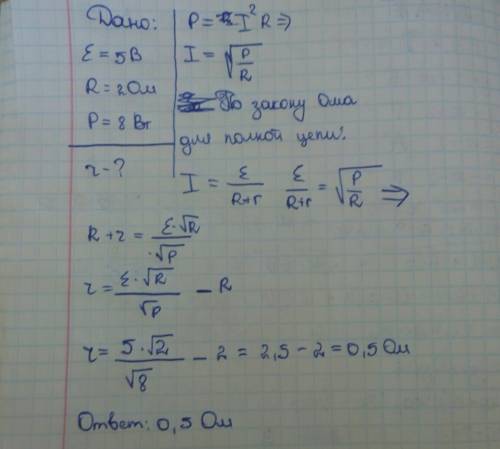 Дано:
ε = 5В
R = 2Ом
P = 8 Вт
r - ?
P = I²R ⇒
I = √(P/R)
По закону Ома
для полной цепи:
I = ε/(R+r)   ε/(R+r) = √(P/R) ⇒
R + r = ε·√R/·√P
r = ε·√R/√P − R
r = 5·√2/√8 − 2 = 2,5 − 2 = 0,5 Ом
Ответ: 0,5 Ом